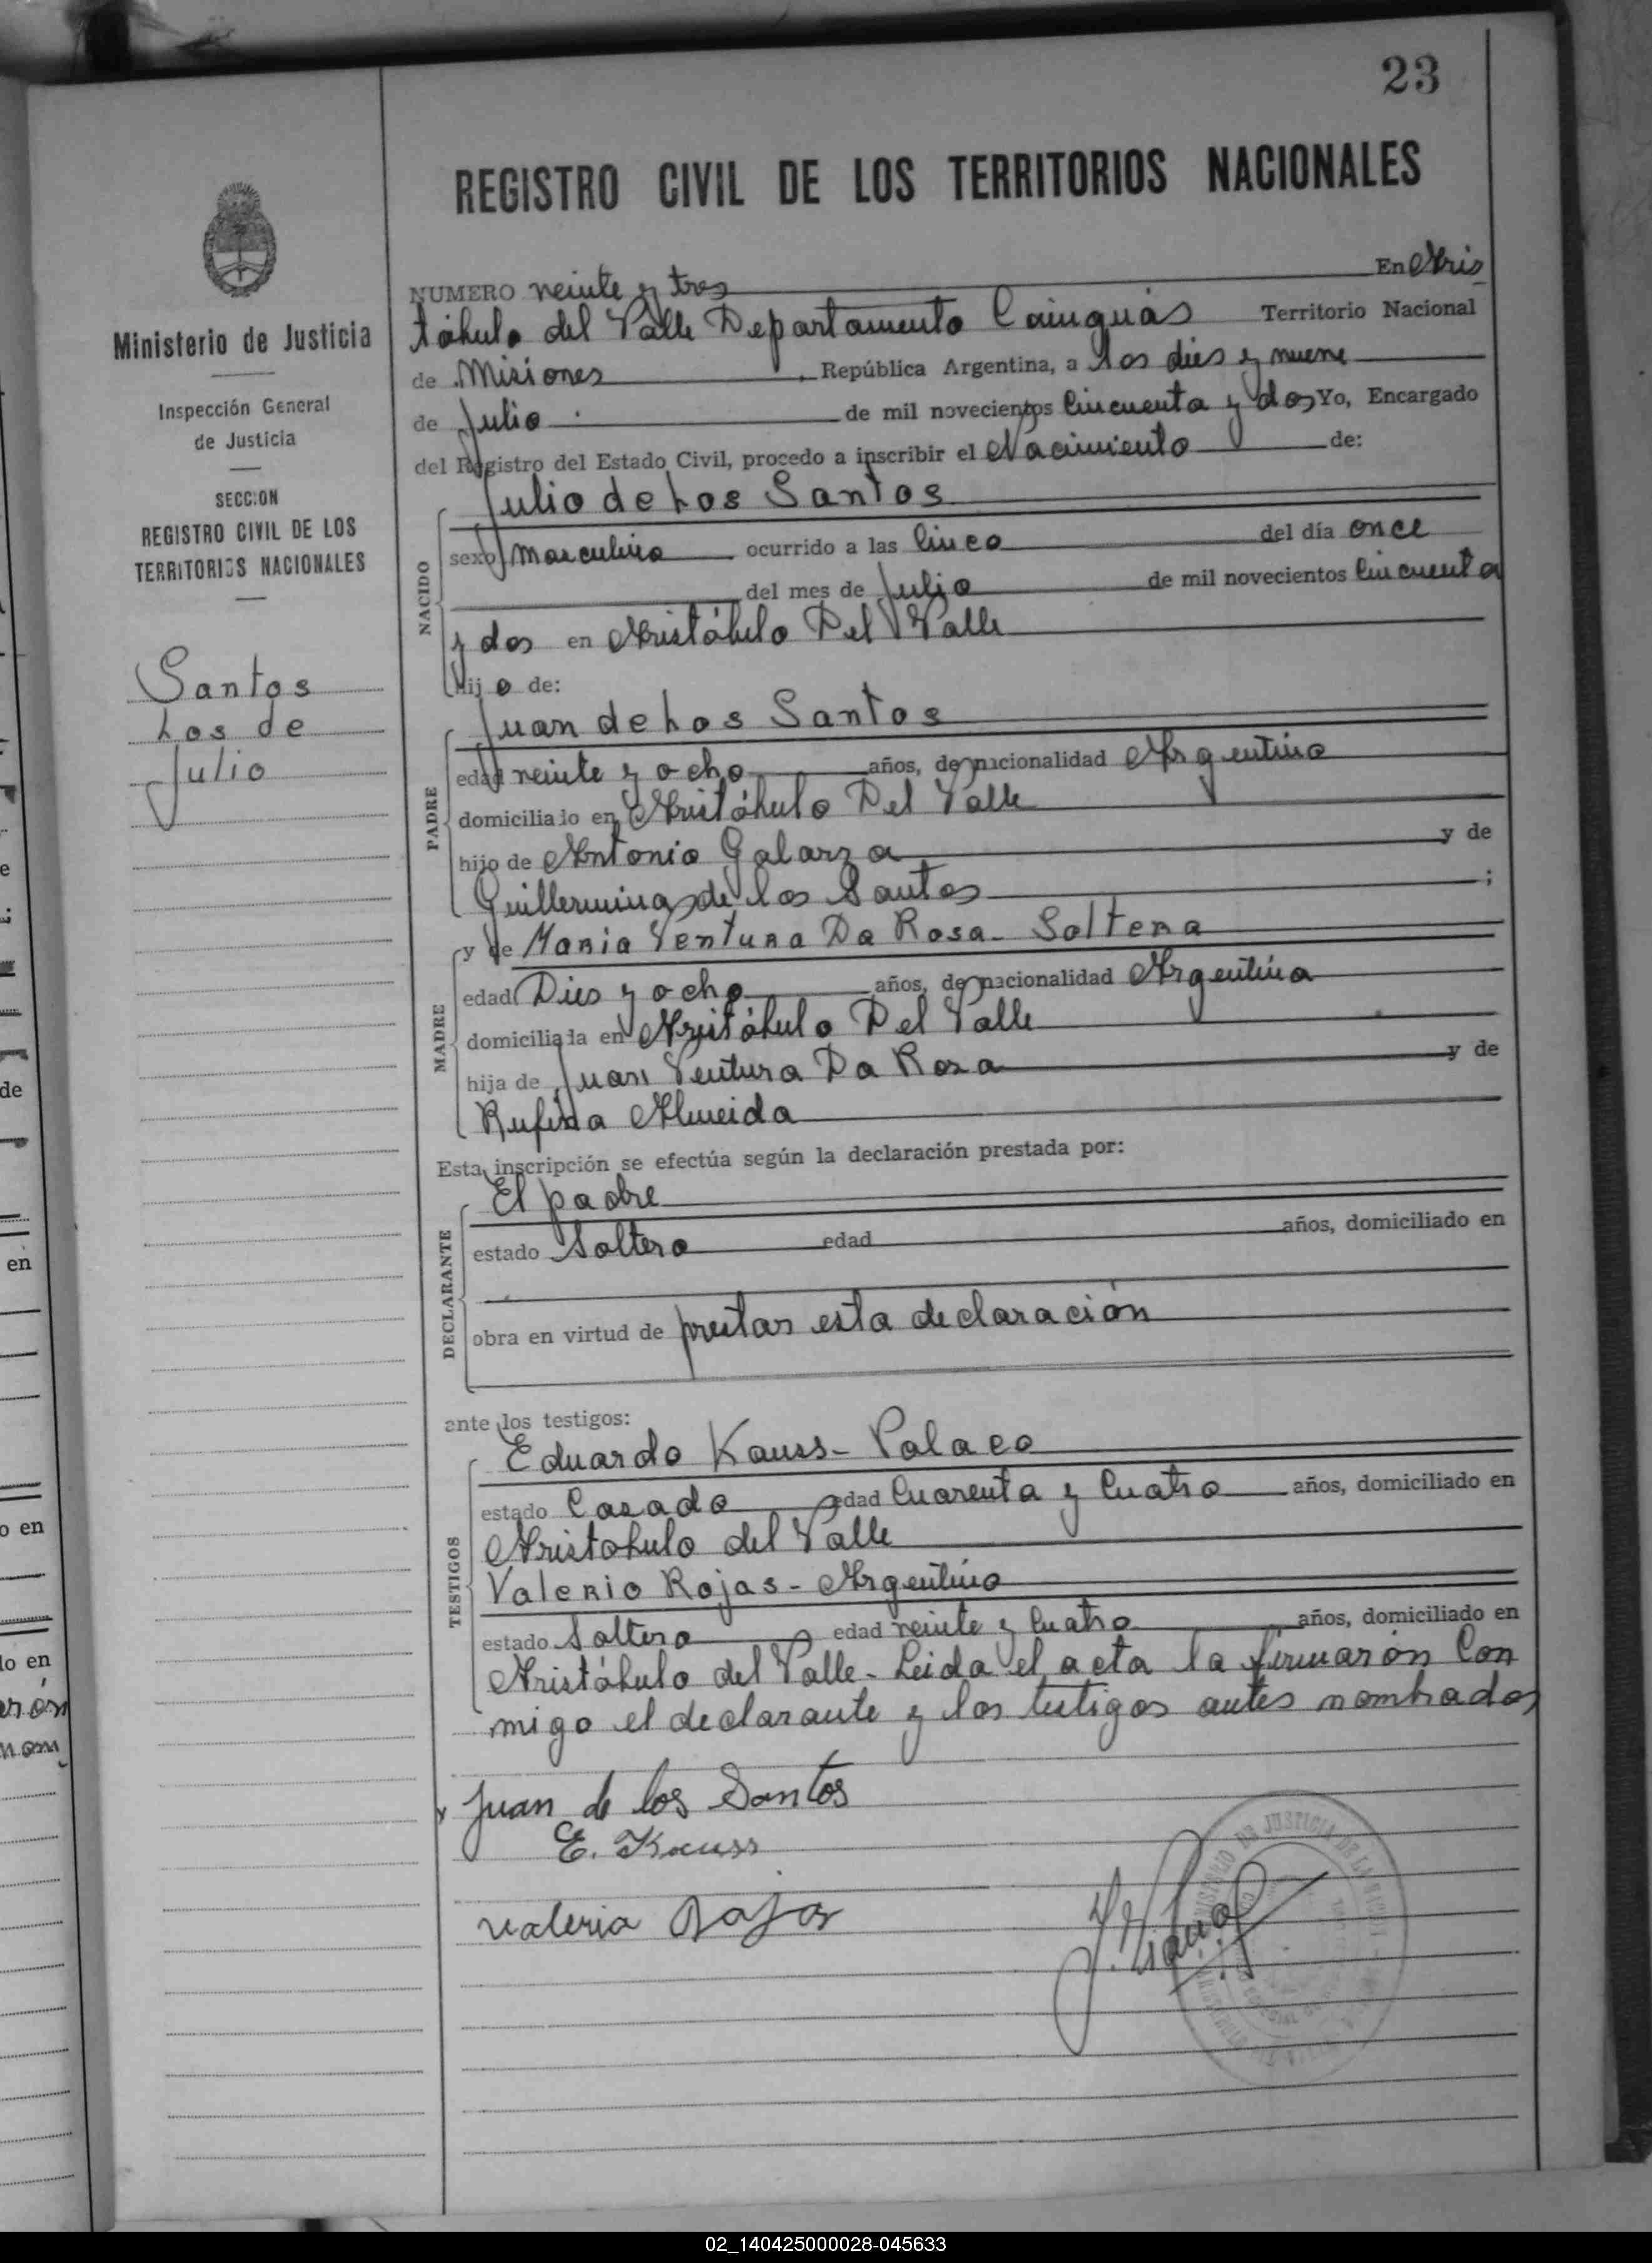 23
REGISTRO CIVIL DE LOS TERRITORIOS NACIONALES
Ministerio de Justicia
Inspección General
de Justicia
SECCION
REGISTRO CIVIL DE LOS
TERRITORIOS NACIONALES
Santos
Los de
Julio
NUMERO veinte y tres En Aris
tóbulo del Valle Departamento Cainguás Territorio Nacional
de Misiones, República Argentina, a los dies y nueve
de Julio de mil novecientos Cincuenta y dos Yo, Encargado
del Registro del Estado Civil, procedo a inscribir el Nacimiento de:
NACIDO
Julio de Los Santos
sexo masculino ocurrido a las Cinco del día once
del mes de Julio de mil novecientos Cincuenta
y dos en Aristóbulo Del Valle
hijo de:
PADRE
Juan de Los Santos
edad veinte y ocho años, de nacionalidad Argentino
domiciliado en Aristóbulo Del Valle
hijo de Antonio Galarza y de
Guillermina de los Santos ;
MADRE
y de Maria Ventura Da Rosa - Soltera
edad Dies y ocho años, de nacionalidad Argentina
domiciliada en Aristóbulo Del Valle
hija de Juan Ventura Da Rosa y de
Rufina Almeida
Esta inscripción se efectúa según la declaración prestada por:
DECLARANTE
El padre
estado Soltero edad años, domiciliado en
obra en virtud de prestar esta declaración
ante los testigos:
TESTIGOS
Eduardo Kauss - Polaco
estado Casado edad Cuarenta y Cuatro años, domiciliado en
Aristobulo del Valle
Valerio Rojas - Argentino
estado Soltero edad veinte y Cuatro años, domiciliado en
Aristóbulo del Valle - Leida el acta la firmarón Con
migo el declarante y los testigos antes nombrados
Juan de los Santos
E. Kauss
Valerio Rojas
02_140425000028-045633